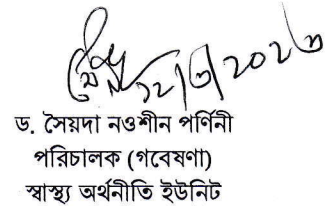 ১২/৩/২০২৩
ড. সৈয়দা নওশীন পর্ণিনী
পরিচালক (গবেষণা)
স্বাস্থ্য অর্থনীতি ইউনিট